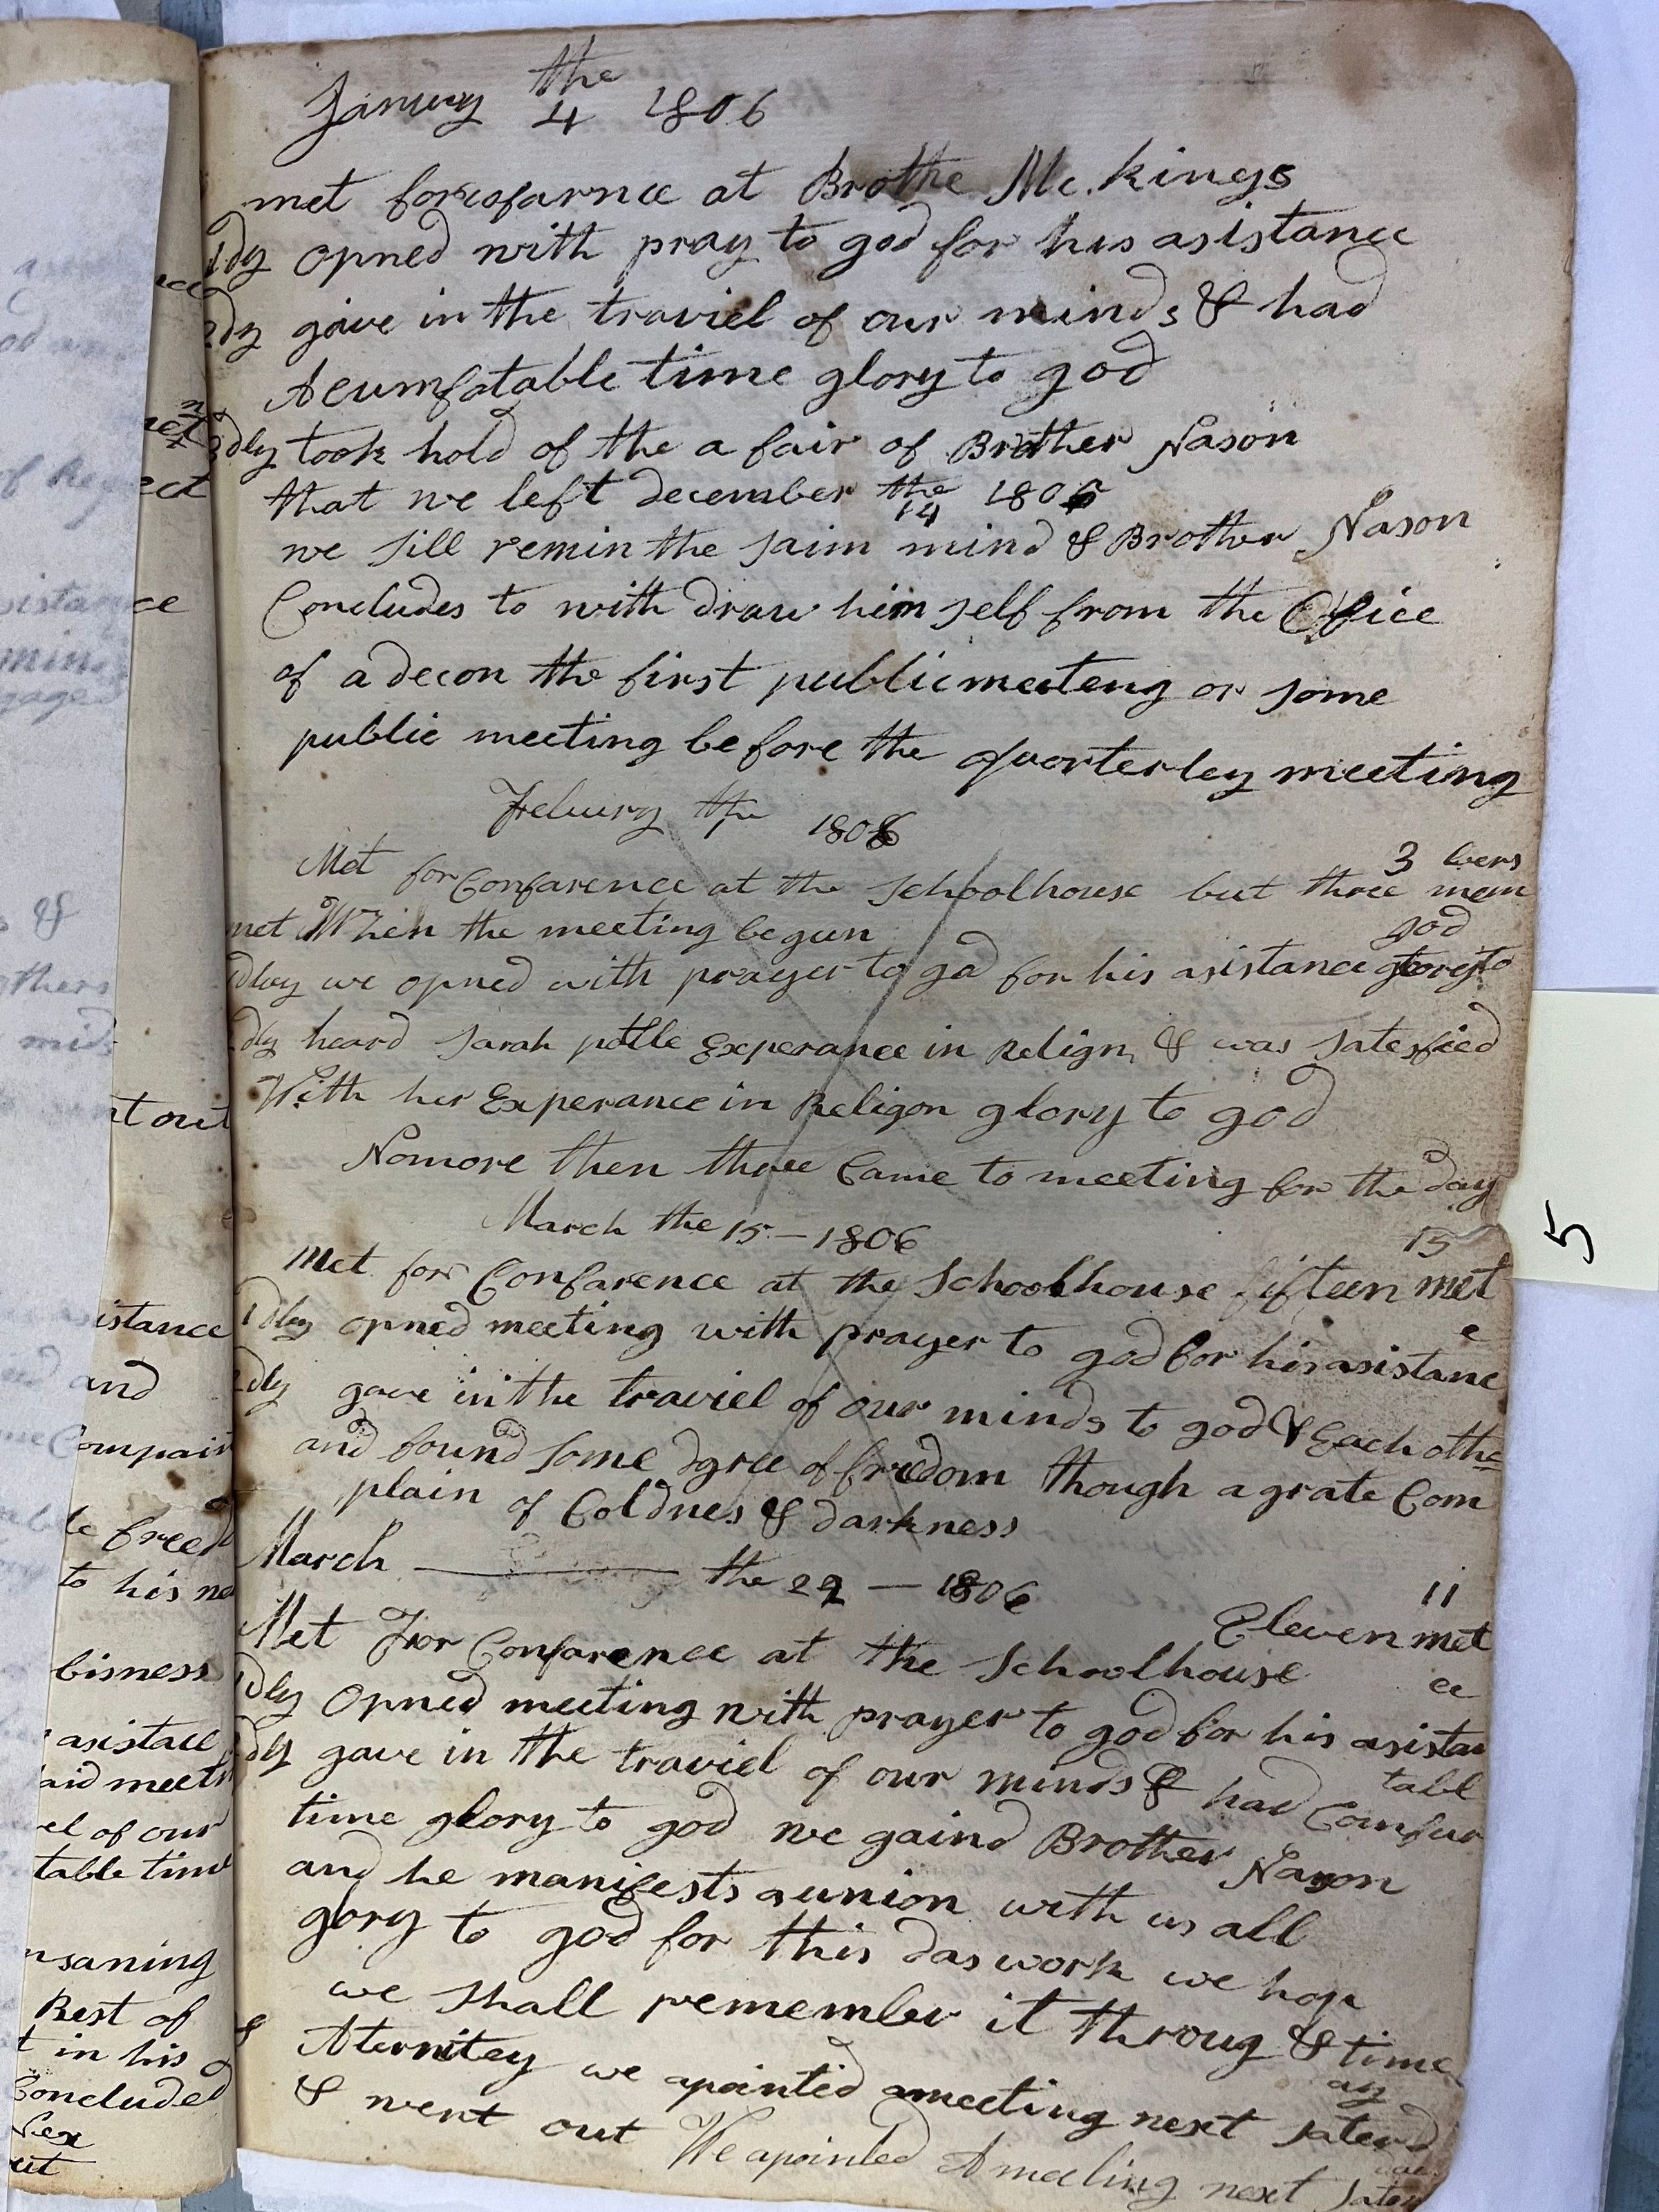 Januery the 4 1806
met forcofarnce at Brothe Mc. kings
1dly opned with pray to god for his asistance
2dly gave in the traviel of our minds & had
A cumfatable time glory to god
3dly took hold of the a fair of Brother Nason
that we left december the 14 1805
we sill remin the saim mind & Brother Nason
Concludes to with draw him self from the Office
of a decon the first public meeteng or some
public meeting before the quorterley meeting
Feburey the 1 1806
Met for Confarence at the schoolhouse but three 3 mem bers
met When the meeting begun
1dley we opned with prayer to gad for his asistance glorey to god
2dly heard Sarah potlle Experance in Relign & was satesfied
With her Experance in Religon glory to god
Nomore then three Came to meeting for the day
March the 15 — 1806
Met for Confarence at the Schoolhouse fifteen met 15
1dley opned meeting with prayer to god for his asistanc e
2dly gave in the traviel of our minds to god & Each othe
and found some dgree of freedom though a grate Com
plain of Coldnes & darkness
March — the 22 — 1806
Met For Confarence at the Schoolhouse Eleven met 11
1dley Opned meeting with prayer to god for his asistan ce
2dly gave in the traviel of our minds & had Comfur tabl
time glory to god we gaind Brother Nason
and he manifests a union with us all
glory to god for this das work we hop
we shall remember it throug & time
& Aternitey we apointed a meeting next saterd ay
& went out We apointed A meeting next sater
5
istance
and
t out
bisness
asistace
aid meet
el of our
table time
saning
Rest of
t in his
Concluded
Nex